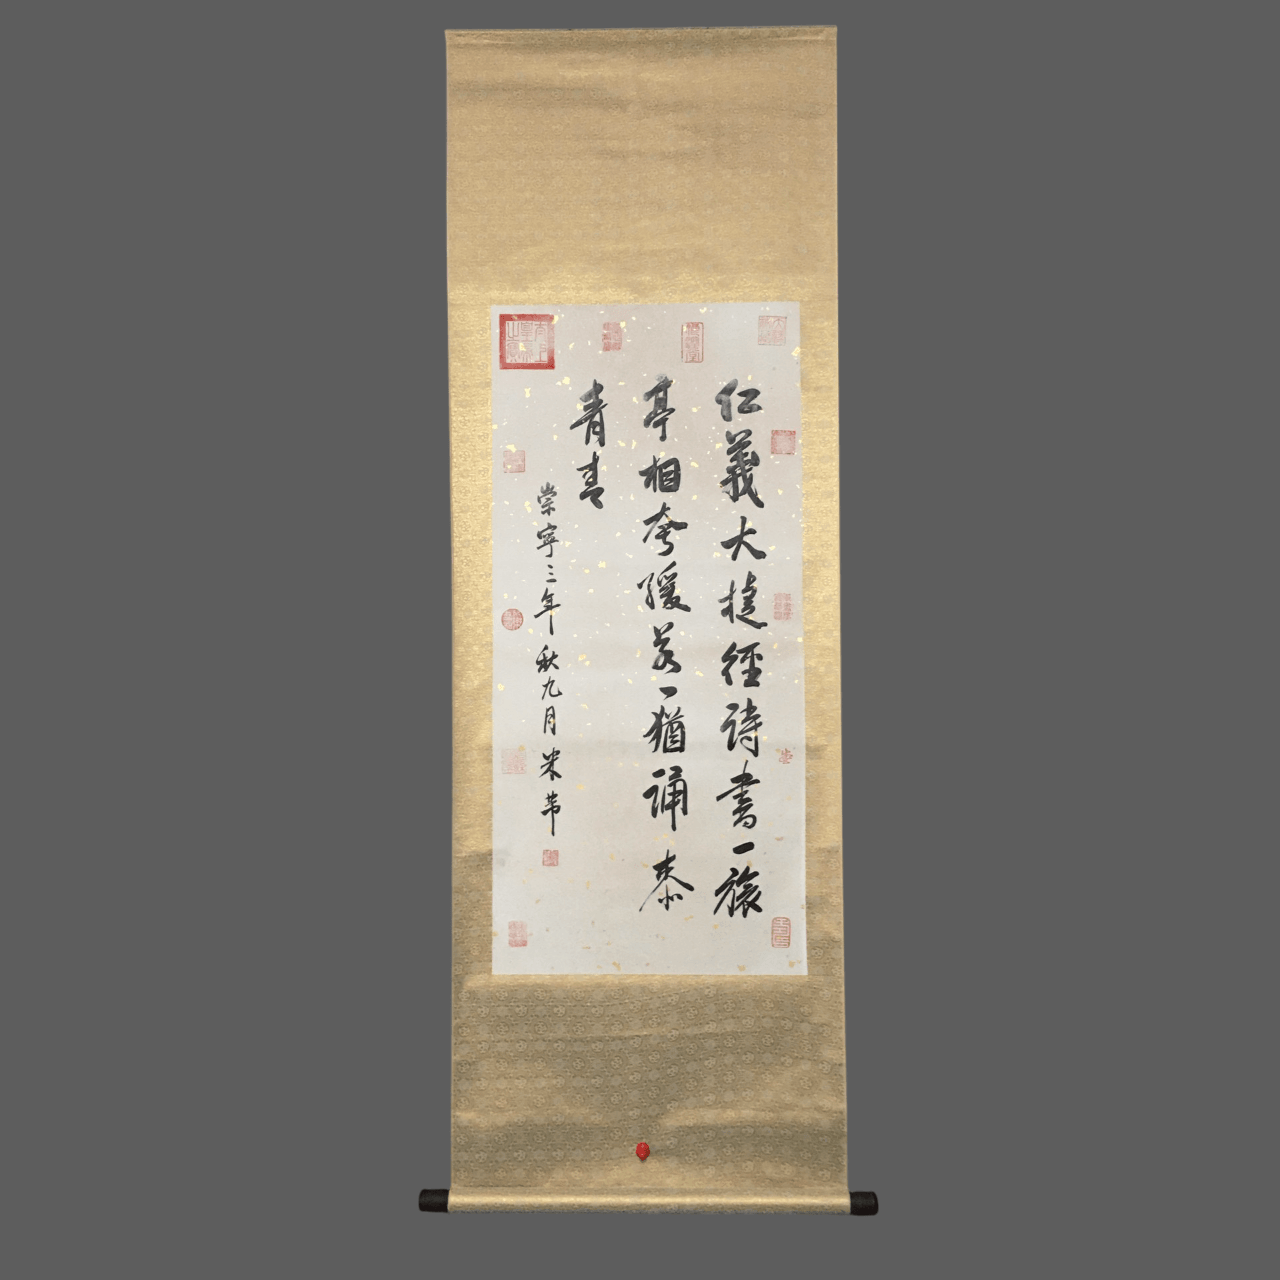 仁義大捷徑詩書一旅
亭相夸綬若〻猶誦麥
青青
崇寧三年秋九月米芾